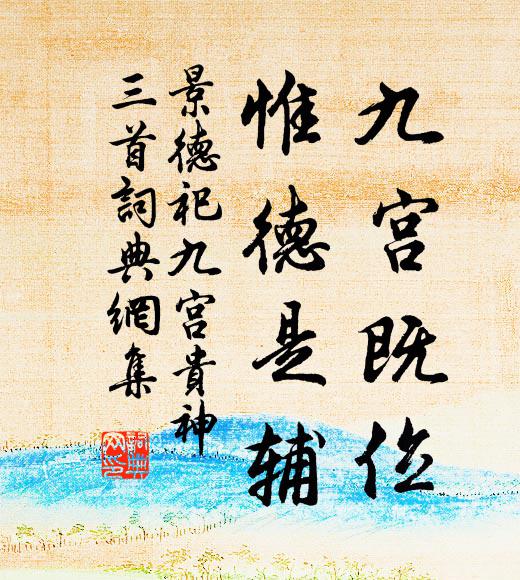 九宫既位
惟德是辅
景德祀九宫貴神
三首詞典網集